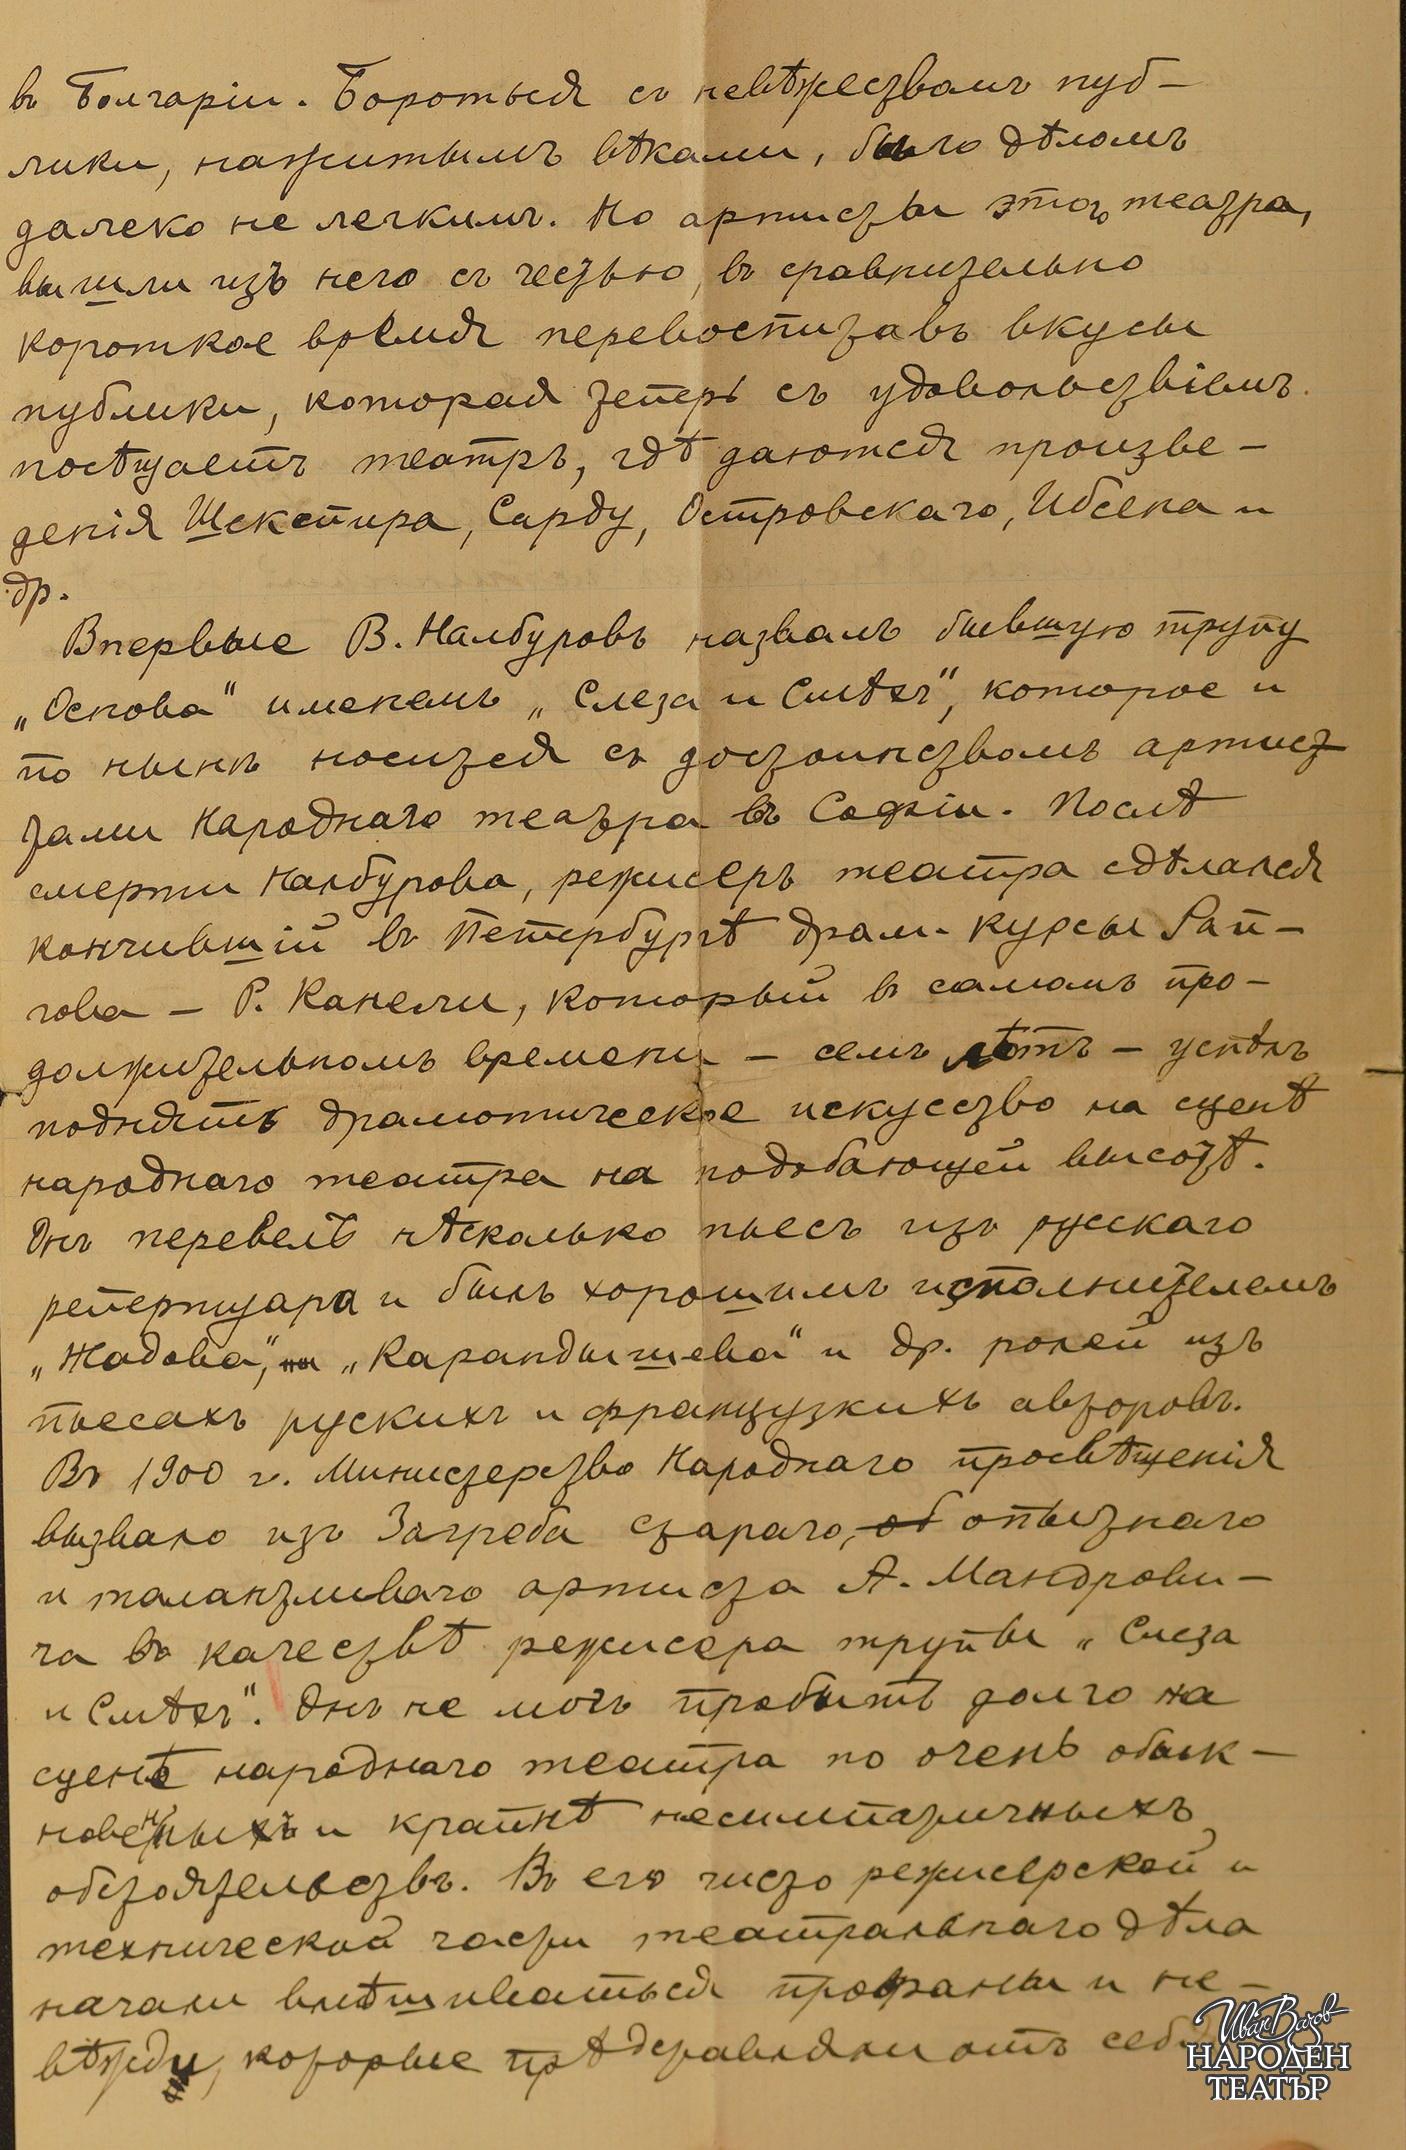 въ Болгаріи. Бороться съ невѣжествомъ пуб-
лики, нажитымъ вѣками, было дѣломъ
далеко не легкимъ. Но артисты этого театра,
вышли изъ него съ честью, въ сравнительно
короткое время перевоспитавъ вкусы
публики, которая теперь съ удовольствіемъ
посѣщаетъ театръ, гдѣ даются произве-
денія Шекспира, Сарду, Островскаго, Ибсена и
др.
Впервые В. Налбуровъ назвалъ бывшую трупу
„Основа" именемъ „Слеза и Смѣхъ", которое и
по нынѣ носится съ достоинствомъ артис-
тами Народнаго театра въ Софіи. Послѣ
смерти Налбурова, режисеръ театра сдѣлался
кончившій въ Петербургѣ драм. курсы Рап-
гова – Р. Канели, который въ самомъ про-
должительномъ времени – семь лѣтъ – успѣлъ
поднять драмотическое искусство на сценѣ
народнаго театра на подобающей высотѣ.
Онъ перевелъ нѣсколько пьесъ изъ русскаго
репертуара и былъ хорошимъ исполнителемъ
„Жадова", „Карандышева" и др. ролей изъ
пьесахъ рускихъ и французкихъ авторовъ.
Въ 1900 г. Министерство Народнаго просвѣщенія
вызвало изъ Загреба стараго, об опытнаго
и талантливаго артиста А. Мандрови-
ча въ качествѣ режисера трупы „Слеза
и Смѣхъ". Онъ не могъ пробыть долго на
сценѣ народнаго театра по очень обык-
новенныхъ и крайнѣ несимпатичныхъ
обстоятельствъ. Въ его чисто режисерской и
технической части театральнаго дѣла
начали вмѣшиваться профаны и не-
вѣжди, которые прѣдставляли отъ себ
Иван Вазов
НАРОДЕН
ТЕАТЪР